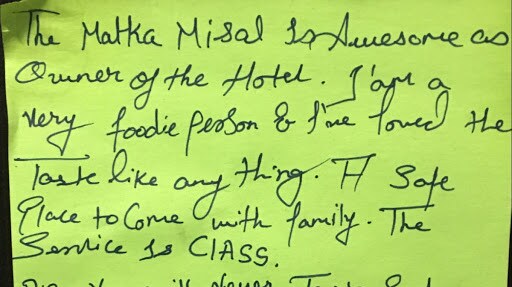 The Matka Misal Is Awesome as
Owner of the Hotel. I'am a
very foodie person & I've loved the
Taste like any thing. A Safe
Place to Come with family. The
Service Is CLASS.